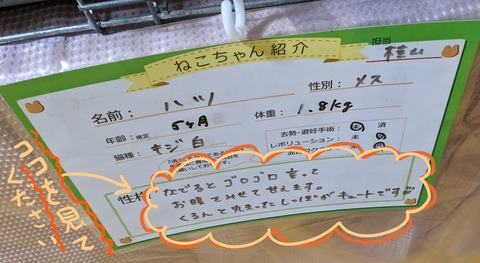 ねこちゃん紹介
担当
桂山
名前: ハツ
性別: メス
年齢: 推定 5ヶ月
体重: 1.8kg
猫種: キジ白
去勢・避妊手術: 未 済
レボリューション: 未
性格
なでるとゴロゴロ言って
お腹をみせて甘えます。
くるんと丸まったしっぽがキュートです
ココを見て
ください